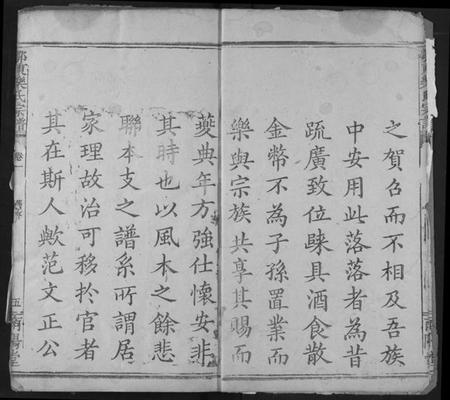 之賀召而不相及吾族
中安用此落落者為昔
疏廣致位賕具酒食散
金幣不為子孫置業而
樂與宗族共享其賜而
燮典年方強仕懷安非
其時也以風本之餘悲
聯本支之譜系所謂居
家理故治可移扵官者
其在斯人歟范文正公
樂氏宗譜
卷一
舊序
五
南陽堂